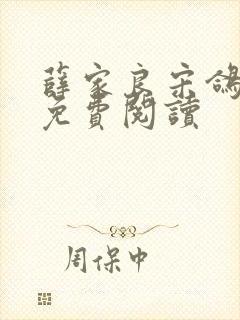 薛家良宋鴿
免費閱讀
周保中